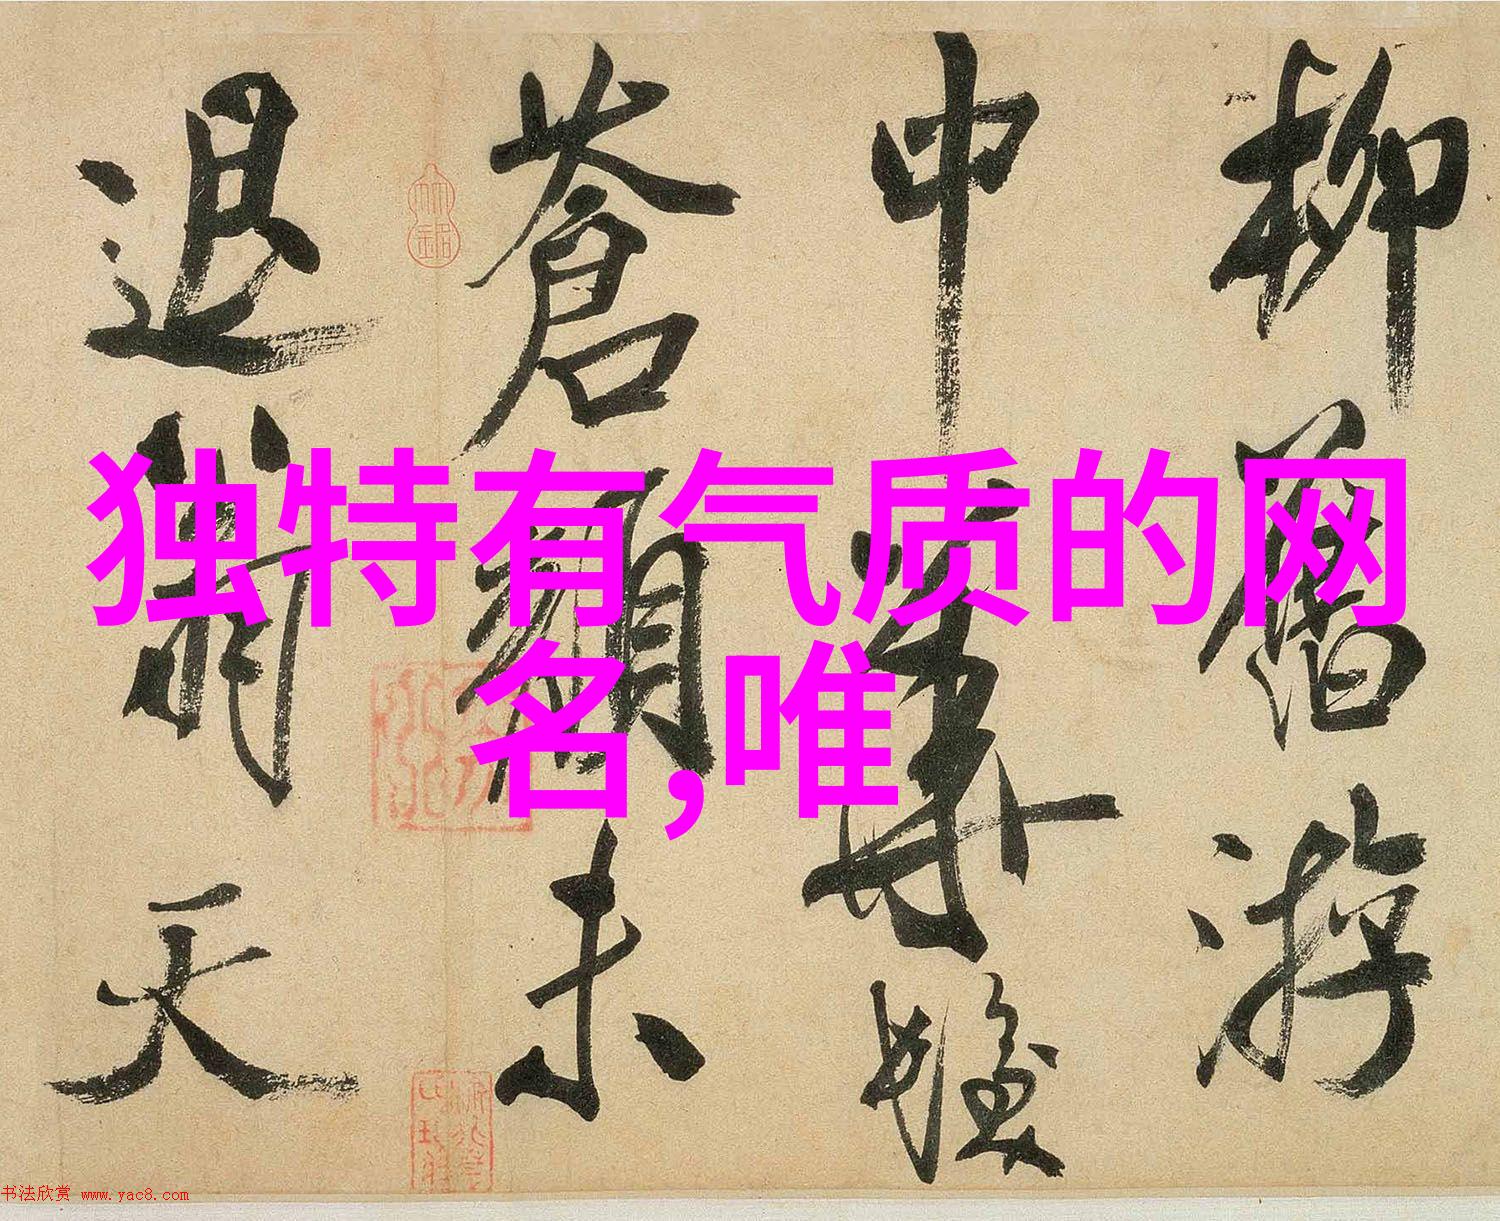 独特有气质的网
名,唯
柳舊游
中華髮
蒼顏未
退翁天
书法欣赏 www.yac8.com